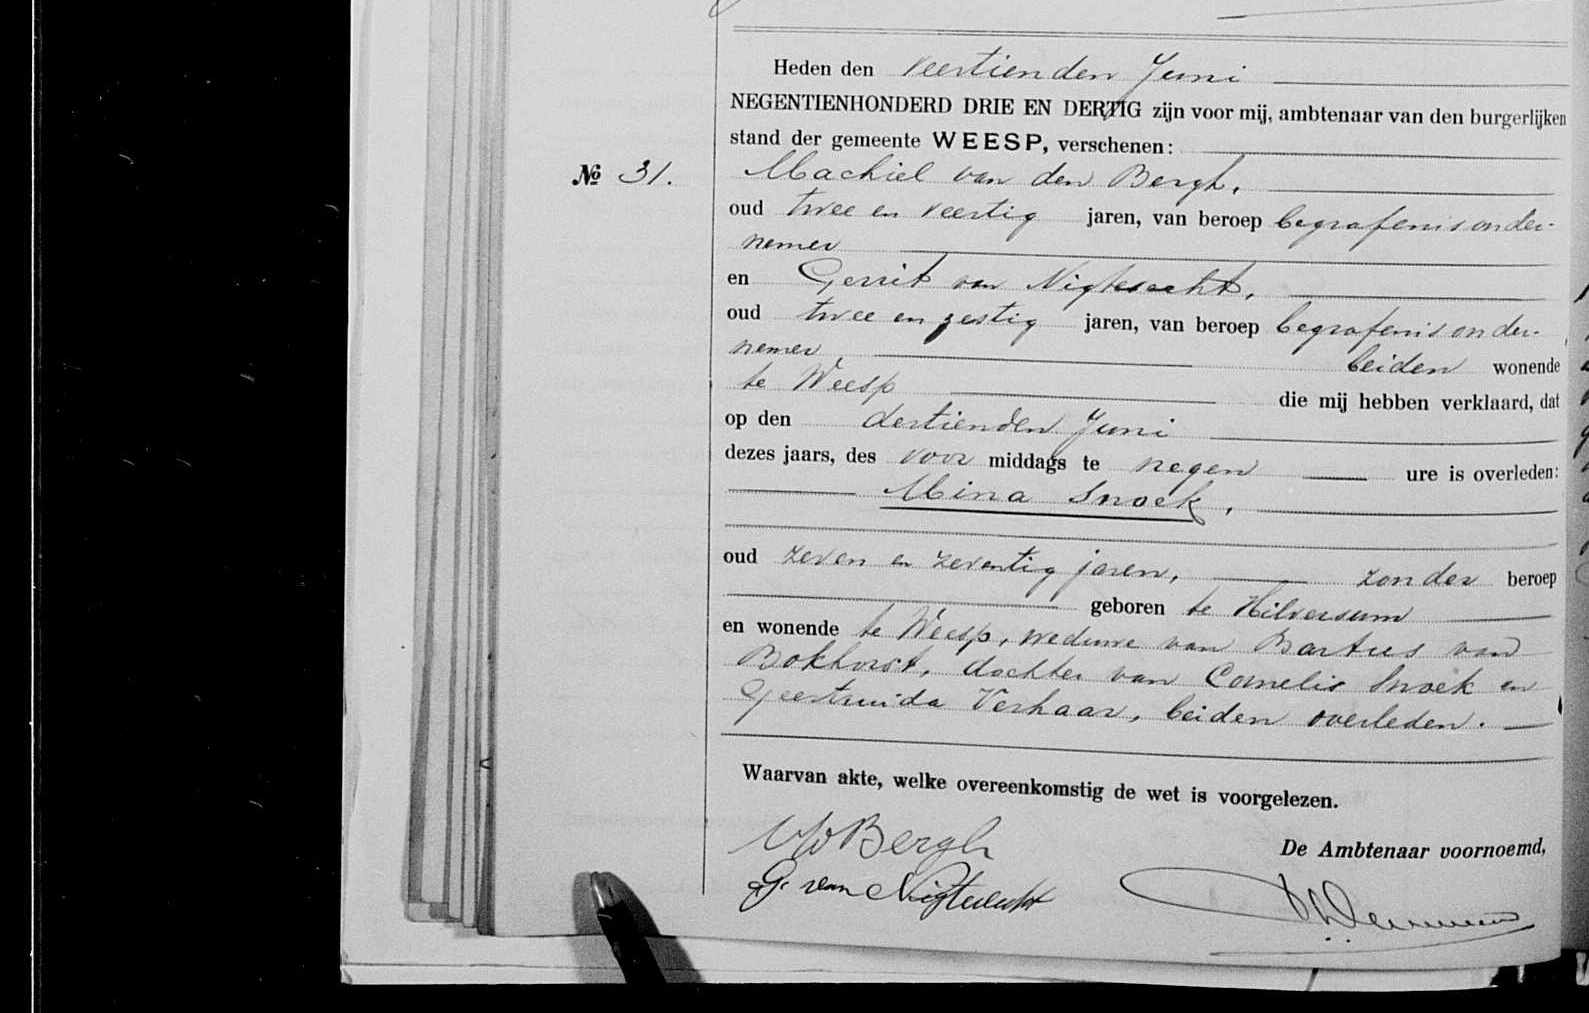 Heden den veertienden Juni
NEGENTIENHONDERD DRIE EN DERTIG zijn voor mij, ambtenaar van den burgerlijken
stand der gemeente WEESP, verschenen:
№ 31. Machiel van den Bergh,
oud twee en veertig jaren, van beroep begrafenisonder-
nemer
en Gerrit van Nigtevecht,
oud twee en zestig jaren, van beroep begrafenisonder-
nemer beiden wonende
te Weesp die mij hebben verklaard, dat
op den dertienden Juni
dezes jaars, des voor middags te negen ure is overleden:
Mina Snoek,
oud zeven en zeventig jaren, zonder beroep
geboren te Hilversum
en wonende te Weesp, weduwe van Bartus van
Bokhorst, dochter van Cornelis Snoek en
Geertruida Verhaar, beiden overleden.
Waarvan akte, welke overeenkomstig de wet is voorgelezen.
De Ambtenaar voornoemd,
MvdBergh
G. van Nigtevecht